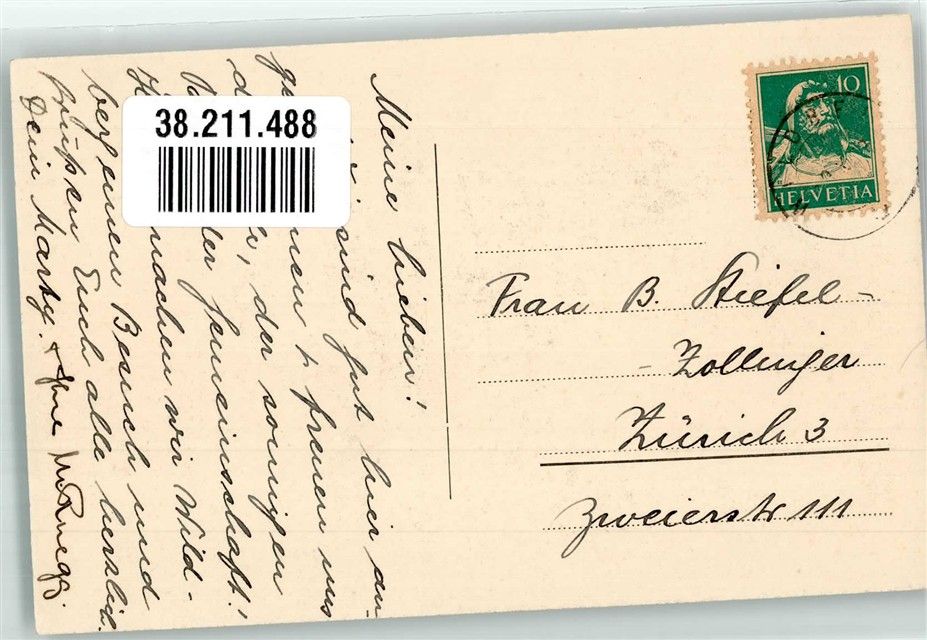 Meine Lieben!
sind gut hier an-
men & freuen uns
der sonnigen
ferneinschaft!
machen wir Wild-
bergemen Besuch und
grüssen Euch alle herzlich
Dein Marty. &
38.211.488
10
HELVETIA
Frau B. Stiefel-
- Zollinger
Zürich 3
Zweierstr 111